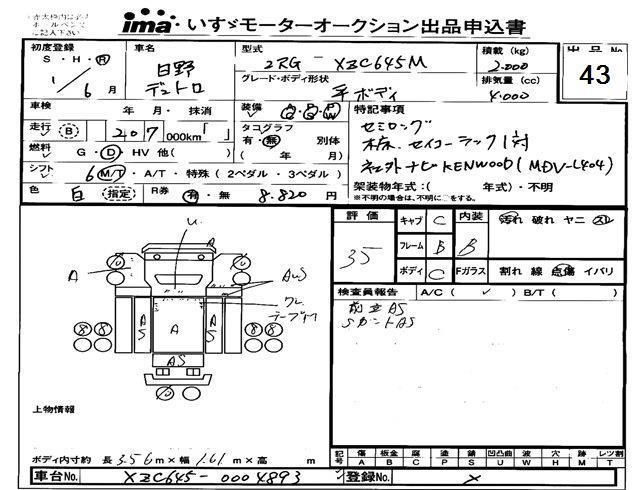 ima いすゞモーターオークション出品申込書
出品No
43
初度登録
S・H・R
1/6月
車名
日野
デュトロ
型式
2RG - XZC645M
グレード・ボディ形状
平ボディ
積載 (kg)
2.000
排気量 (cc)
4.000
車検 年・月・抹消
走行 B 207 000km「 」
燃料 G・D・HV 他( )
シフト 6 M/T・A/T・特殊 ( 2ペダル・3ペダル )
色 白 指定 R券 有・無 8.820 円
装備
タコグラフ
有・無 別体
( 年/ 月)
特記事項
セミロング
木床、セイコーラック1対
社外ナビKENWOOD(MDV-L404)
架装物年式:( 年式)・不明
※不明の場合は、不明に○をする。
評価
35
キャブ C
フレーム B
ボディ C
内装 B
Fガラス
汚れ 破れ ヤニ スレ
割れ 線 点傷 イバリ
検査員報告 A/C ( ✓ ) B/T ( )
AS
SカントAS
U
A
AUS
ワレ
テープハリ
AS
A
AS
AS
上物情報
ボディ内寸約 長 3.56 m × 幅 1.61 m × 高 m
記号 傷 板金 腐 塗 錆 凹凸曲 波 穴 跡 レツ割
A B C P S U W H M T
車台No. XZC645-0004893
登録No. ×